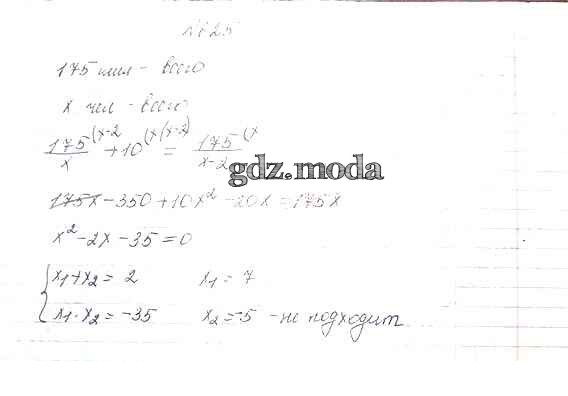 № 725
175 шил – всего
x чел – всего
175/x (x-2 + 10 (x(x-2) = 175/x-2 (x
gdz.moda
175x – 350 + 10x² – 20x = 175x
x² – 2x – 35 = 0
{ x₁ + x₂ = 2 x₁ = 7
x₁ · x₂ = –35 x₂ = –5 – не подходит